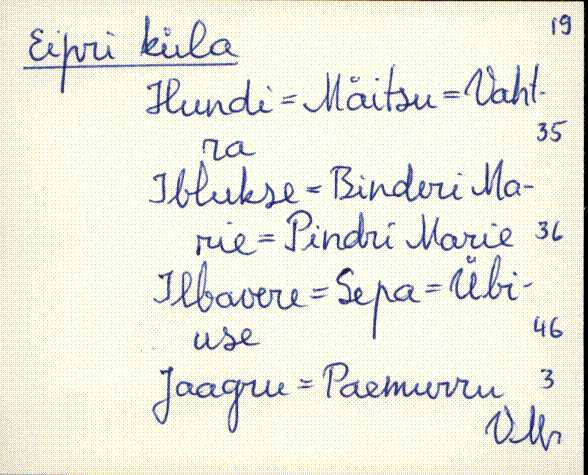 19
Eipri küla
Hundi = Mäitsu = Vaht-
35
ra
Iblukse = Binderi Ma-
rie = Pindri Marie 36
Ilbavere = Sepa = Übi-
46
use
Jaagru = Paemurru 3